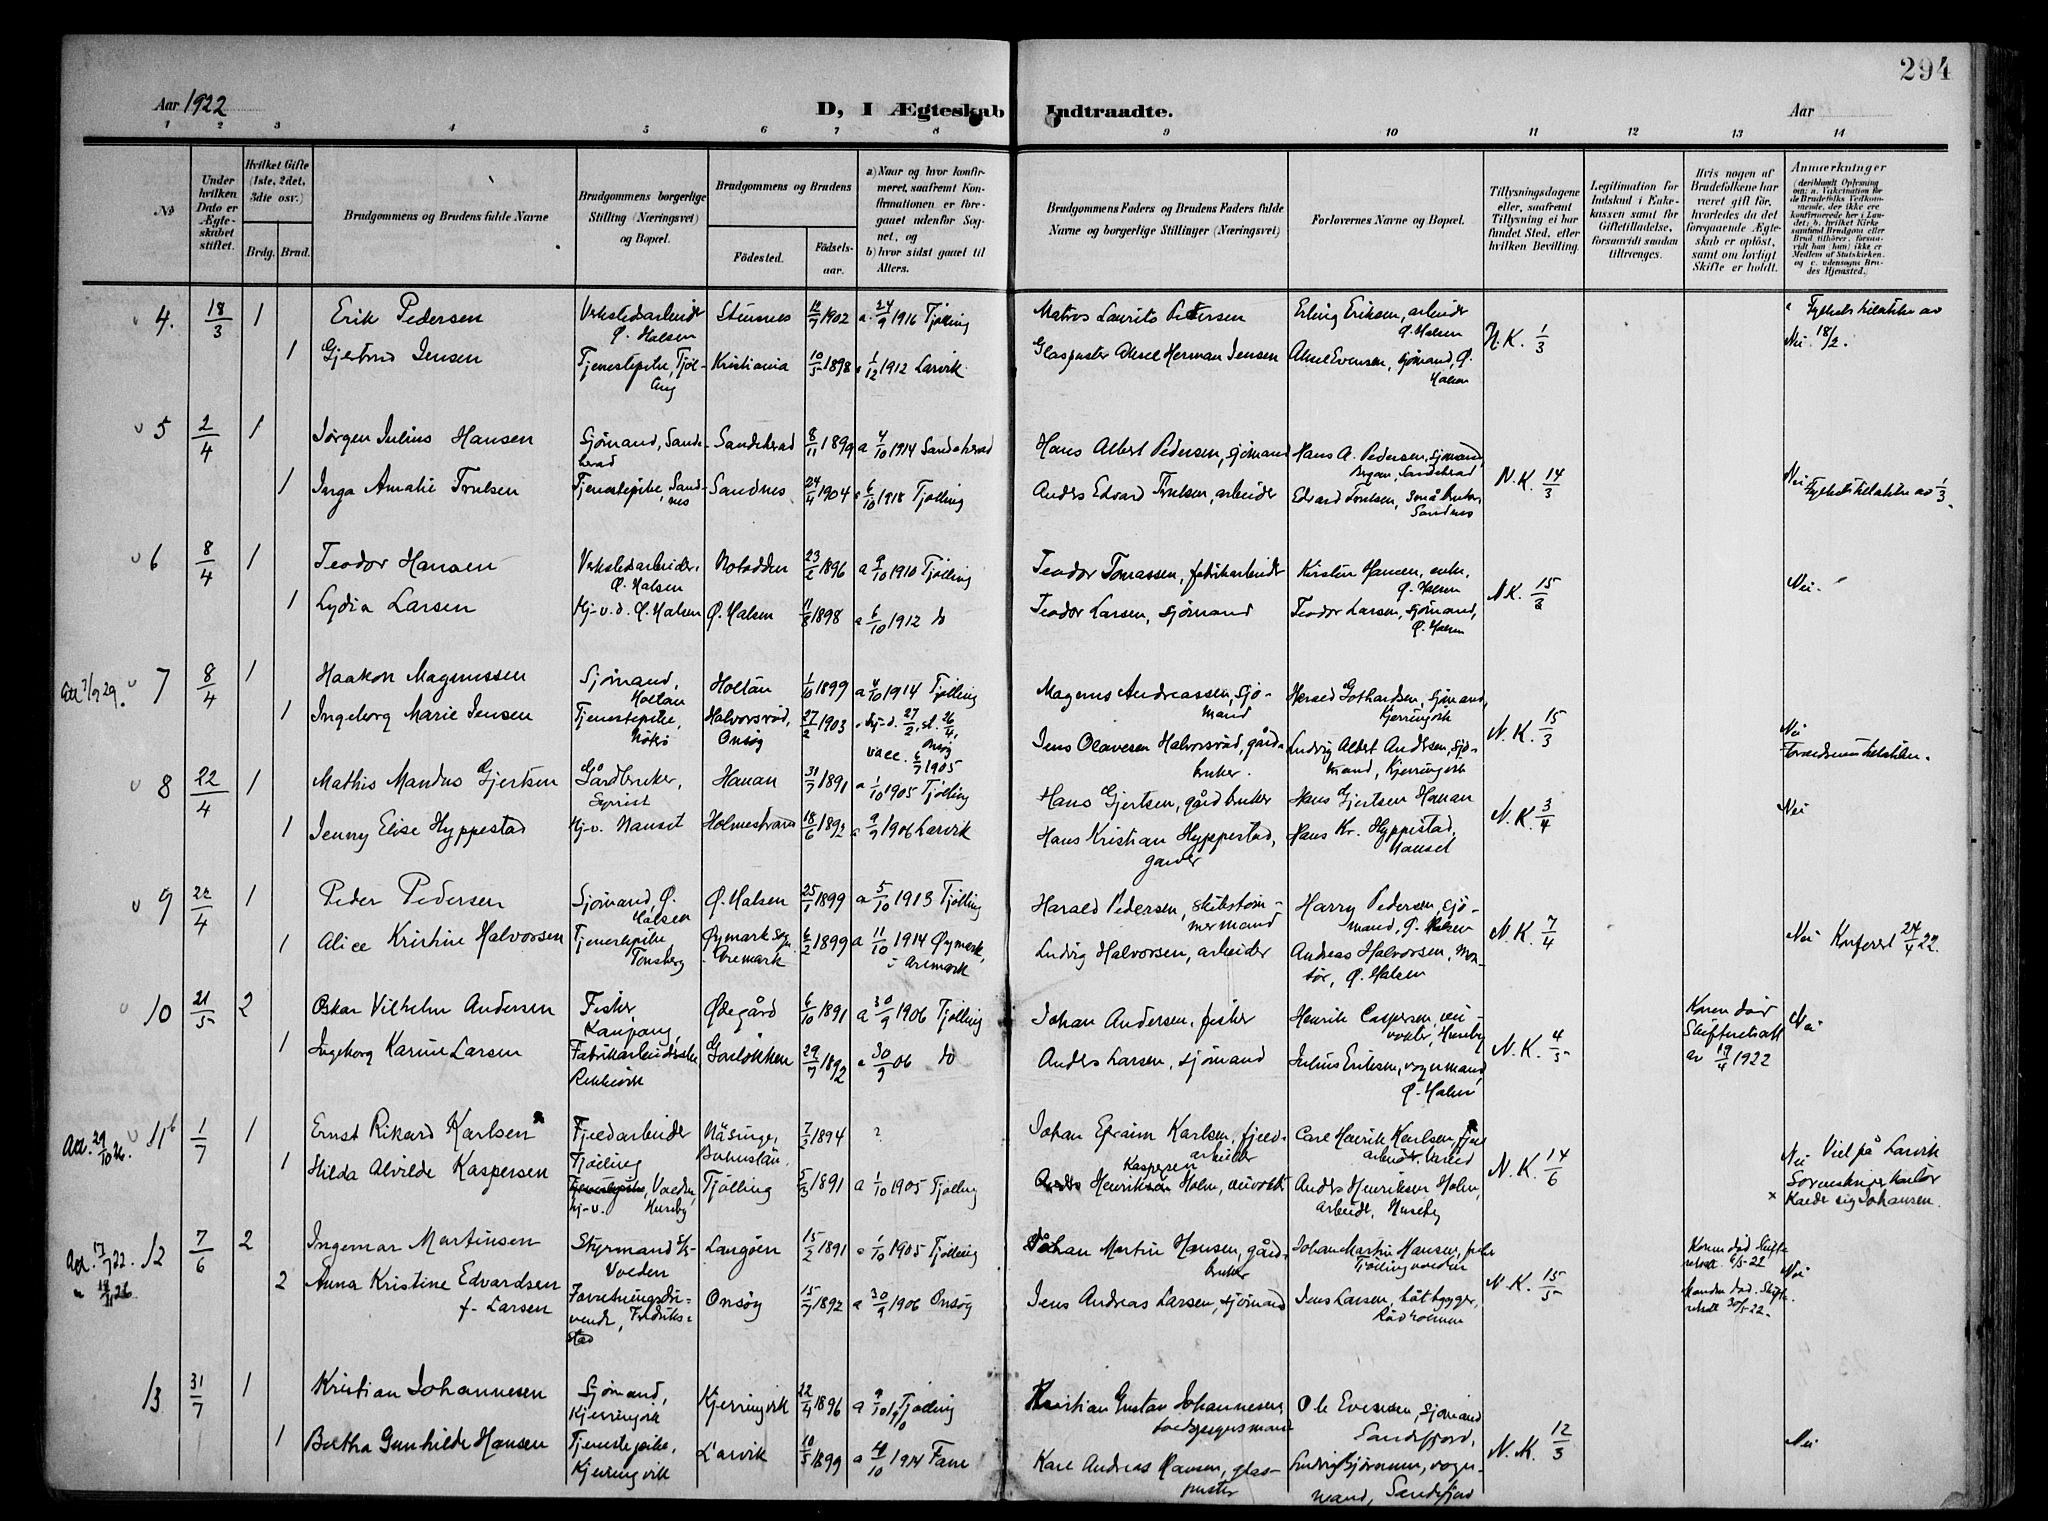 294
Aar 1922
D, I Ægteskab Indtraadte.
Aar
1 2 3 4 5 6 7 8 9 10 11 12 13 14
No
Under hvilken Dato er Ægteskabet stiftet.
Hvilket Gifte (1ste, 2det, 3die osv.)
Brdg. Brud.
Brudgommens og Brudens fulde Navne
Brudgommens borgerlige Stilling (Næringsvei) og Bopæl.
Brudgommens og Brudens
Fødested.
Fødselsaar.
a) Naar og hvor konfirmeret, saafremt Konfirmationen er foregaaet udenfor Sognet, og
b) hvor sidst gaaet til Alters.
Brudgommens Faders og Brudens Faders fulde Navne og borgerlige Stillinger (Næringsvei)
Forlovernes Navne og Bopæl.
Tillysningsdagene eller, saafremt Tillysning ei har fundet Sted, efter hvilken Bevilling.
Legitimation for Indskud i Enkekassen samt for Giftetilladelse, forsaavidt saadan tiltrænges.
Hvis nogen af Brudefolkene har været gift før, hvorledes da det foregaaende Ægteskab er opløst, samt om lovligt Skifte er holdt.
Anmærkninger
4. 18/3 1 Erik Pedersen Verkstedsarbeider Ø. Halsen Stensnes 12/7 1902 a. 24/9 1916 Tjølling Matros Laurits Pedersen Erling Eriksen, arbeider Ø. Halsen N.K. 1/3
1 Gjertrud Jensen Tjenestepike, Tjølling Kristiania 10/5 1898 1/12 1912 Larvik Glaspuster Aksel Herman Jensen Aksel Evensen, sjømand, Ø. Halsen Nei. 18/2.
5 2/4 1 Jørgen Julius Hansen Sjømand, Sandeherad Sandeherad 8/11 1899 a 4/10 1914 Sandeherad Hans Albert Pedersen, sjømand Hans A. Pedersen, sjømand, Sandeherad
1 Inga Amalie Trulsen Tjenestepike, Sandnes Sandnes 24/4 1904 6/10 1918 Tjølling Anders Edvard Trulsen, arbeider Edvard Trulsen, småbruker, Sandnes N.K. 14/3 Nei
6 8/4 1 Teodor Hansen Verkstedsarbeider, Ø. Halsen Notodden 23/2 1896 a 9/10 1910 Tjølling Teodor Tomassen, fabrikarbeider Kirsten Hansen, enke, Ø. Halsen N.K. 15/3 Nei.
1 Lydia Larsen Hj. v. d. Ø. Halsen Ø. Halsen 11/8 1898 a 6/10 1912 do Teodor Larsen, sjømand Teodor Larsen, sjømand, Ø. Halsen
7 8/4 1 Haakon Magnussen Sjømand, Holtan Holtan 1/10 1899 a 4/10 1914 Tjølling Magnus Andreassen, sjømand Gothardsen, sjømand, Kjerringvik
1 Ingeborg Marie Jensen Tjenestepike, Halvorsrød, Onsøy 27/2 1903 vacc. 6/7 1905 Jens Olavesen Halvorsrød, gårdbruker. Ludvig Albert Andersen, sjømand, Kjerringvik N.K. 15/3 Nei
8 22/4 1 Mathis Mandus Gjertsen Gårdbruker, Hanan 31/7 1891 a 1/10 1905 Tjølling Hans Gjertsen, gårdbruker Hans Gjertsen Hanan N.K. 3/4 Nei
1 Jenny Elise Hyppestad Hj. v. Nanset Holmestrand 18/6 1892 a 9/9 1906 Larvik Hans Kristian Hyppestad, garver Hans Kr. Hyppestad, Nanset
9 22/4 1 Peder Pedersen Sjømand, Ø. Halsen Ø. Halsen 25/1 1899 a 5/10 1913 Tjølling Harald Pedersen, skibstømmermand Harry Pedersen, sjømand, Ø. Halsen N.K. 7/4
1 Alice Kristine Halvorsen Tjenestepike Tønsberg Øymark sogn Aremark 6/2 1899 a 11/10 1914 Øymark, i Aremark Ludvig Halvorsen, arbeider Andreas Halvorsen, montør, Ø. Halsen Nei Konferert 24/4 22.
10 21/5 2 Oskar Vilhelm Andersen Fisker, Kaupang, Ødegård 6/10 1891 a 30/9 1906 Tjølling Johan Andersen, fisker Henrik Caspersen, veivokter, Huseby N.K. 4/5 Konen død Skifteretsatt. av 19/4 1922 Nei
1 Ingeborg Karine Larsen Fabrikarbeiderske Rekkevik Gonløkken 29/7 1892 30/9 06 do Anders Larsen, sjømand Julius Eriksen, vognmand, Ø. Halsen
Att. 29/10 26. 11 1/7 1 Ernst Rikard Karlsen Fjeldarbeider Tjølling Näsinge, Bohuslän. 7/3 1894 ? Johan Efraim Karlsen, fjeldarbeider Carl Henrik Karlsen, fjeldarbeider
1 Hilda Alvilde Kaspersen Tjenestepike, Voeden, hj. v. Huseby Tjølling 5/3 1891 a 1/10 1905 Tjølling Anders Henriksen Kaspersen Holm, veivokter Anders Henriksen Holm, arbeider, Huseby N.K. 14/6 Nei Viet på Larvik Sorenskriverkontor x Kaldte sig Johansen.
Att. 17/7 22. 18/11 26. 12 7/6 2 Ingemar Martinsen Styrmand Voeden Langøen 15/2 1891 1/10 1905 Tjølling Johan Martin Hansen, gårdbruker Johan Martin Hansen, Tjøllingvoeden Konen død Skifteretsatt. 6/5-22 Nei
2 Anna Kristine Edvardsen f. Larsen Forretningsdrivende, Fredrikstad Onsøy 15/7 1892 30/9 1906 Onsøy Jens Andreas Larsen, sjømand Jens Larsen, båtbygger, Rødholmen N.K. 15/5 Manden død. Skifteretsatt 30/5-22.
13 31/7 1 Kristian Johannesen Sjømand, Kjerringvik Kjerringvik 22/4 1896 a 9/10 1910 Tjølling Kristian Gustav Johannesen, Ole Evensen, sjømand Sandefjord,
1 Bertha Gunhilde Hansen Tjenestepike, Kjerringvik Larvik 10/5 1899 a 4/10 1914 Fane Karl Andreas Hansen, glaspuster Ludvig Bjørnum, vognmand, Sandefjord N.K. 12/3 Nei